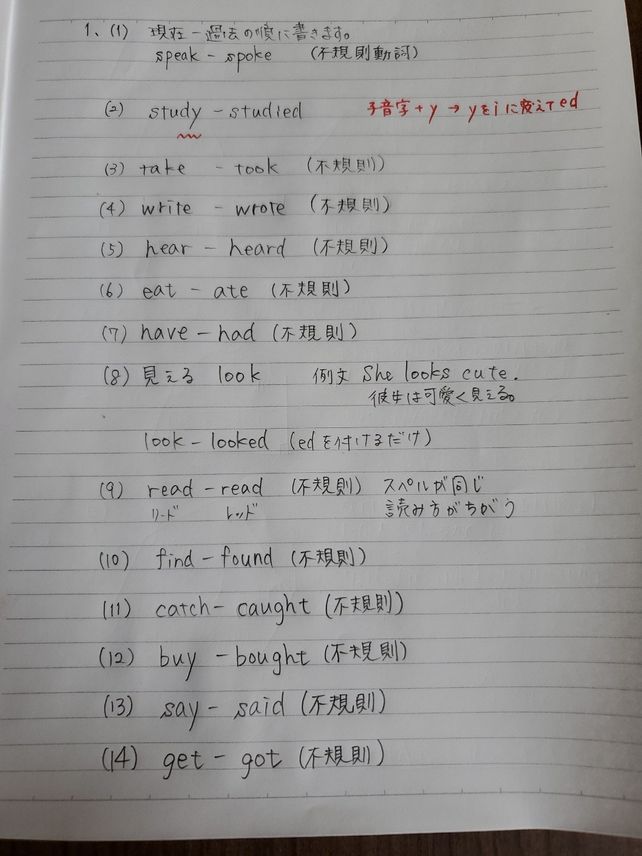 1、(1) 現在-過去の順に書きます。
speak - spoke (不規則動詞)
(2) study - studied 子音字+y → yをiに変えてed
(3) take - took (不規則)
(4) write - wrote (不規則)
(5) hear - heard (不規則)
(6) eat - ate (不規則)
(7) have - had (不規則)
(8) 見える look 例文 She looks cute.
彼女は可愛く見える。
look - looked (edを付けるだけ)
(9) read - read (不規則) スペルが同じ
リード レッド 読み方がちがう
(10) find - found (不規則)
(11) catch - caught (不規則)
(12) buy - bought (不規則)
(13) say - said (不規則)
(14) get - got (不規則)